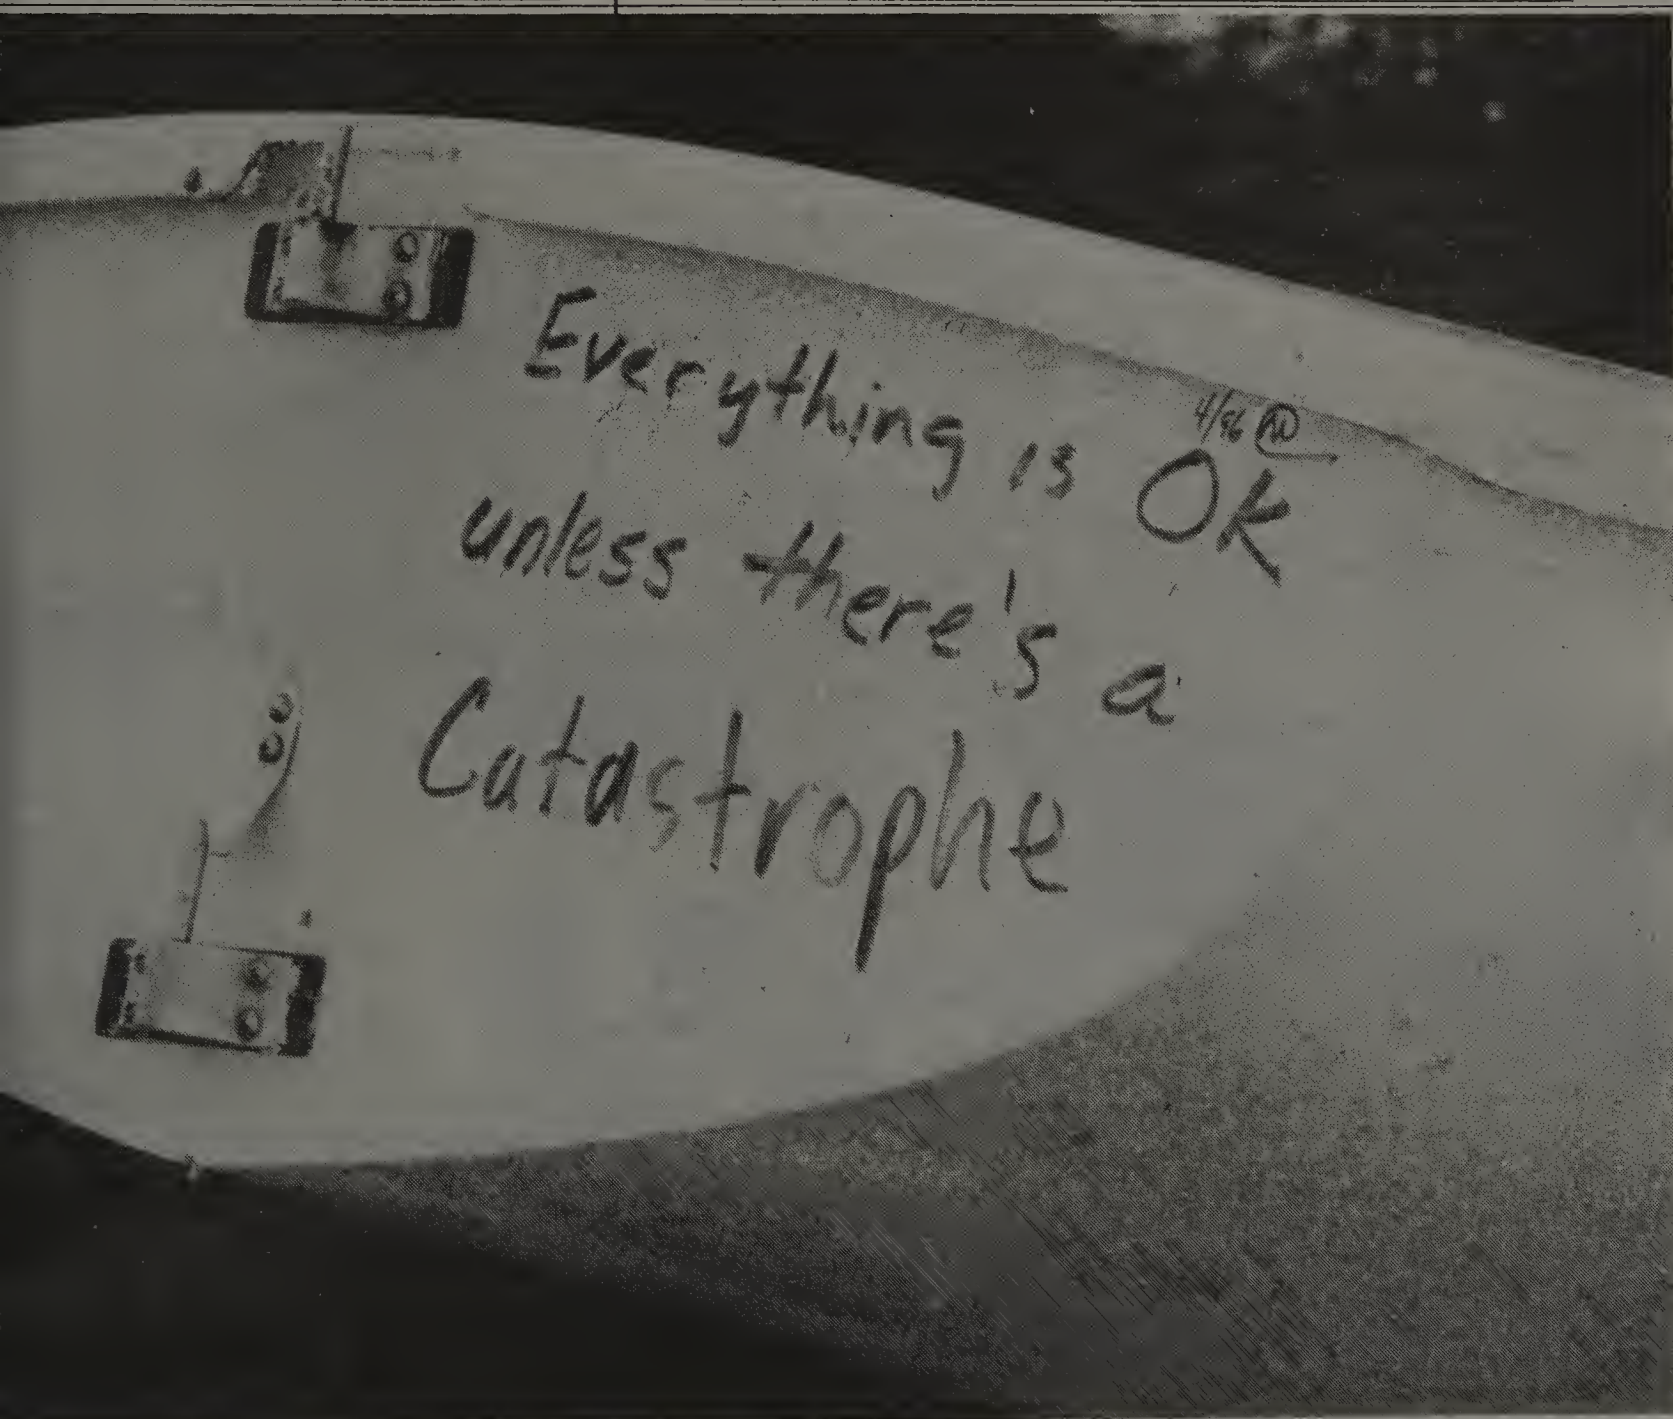 Everything is OK
4/86
unless there's a
Catastrophe